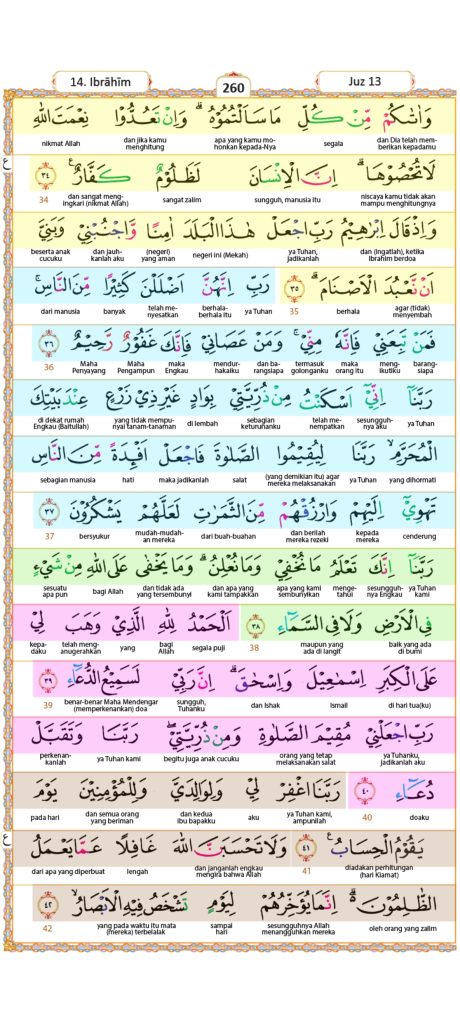 14. Ibrāhīm 260 Juz 13
وَاٰتٰىكُمْ مِّنْ كُلِّ مَا سَاَلْتُمُوْهُۗ وَاِنْ تَعُدُّوْا نِعْمَتَ اللّٰهِ
dan Dia telah memberikan kepadamu segala apa yang kamu mohonkan kepada-Nya dan jika kamu menghitung nikmat Allah
لَا تُحْصُوْهَاۗ اِنَّ الْاِنْسَانَ لَظَلُوْمٌ كَفَّارٌ ࣖ ٣٤
ع
niscaya kamu tidak akan mampu menghitungnya sungguh, manusia itu sangat zalim dan sangat mengingkari (nikmat Allah) 34
وَاِذْ قَالَ اِبْرٰهِيْمُ رَبِّ اجْعَلْ هٰذَا الْبَلَدَ اٰمِنًا وَّاجْنُبْنِيْ وَبَنِيَّ
dan (ingatlah), ketika Ibrahim berdoa ya Tuhan, jadikanlah negeri ini (Mekah) (negeri) yang aman dan jauhkanlah aku beserta anak cucuku
اَنْ نَّعْبُدَ الْاَصْنَامَۗ ٣٥ رَبِّ اِنَّهُنَّ اَضْلَلْنَ كَثِيْرًا مِّنَ النَّاسِۚ
agar (tidak) menyembah berhala 35 ya Tuhan berhala-berhala itu telah menyesatkan banyak dari manusia
فَمَنْ تَبِعَنِيْ فَاِنَّهٗ مِنِّيْۚ وَمَنْ عَصَانِيْ فَاِنَّكَ غَفُوْرٌ رَّحِيْمٌ ٣٦
barangsiapa mengikutiku maka orang itu termasuk golonganku dan barangsiapa mendurhakaiku maka Engkau Maha Pengampun Maha Penyayang 36
رَبَّنَآ اِنِّيْٓ اَسْكَنْتُ مِنْ ذُرِّيَّتِيْ بِوَادٍ غَيْرِ ذِيْ زَرْعٍ عِنْدَ بَيْتِكَ
ya Tuhan sesungguhnya aku telah menempatkan sebagian keturunanku di lembah yang tidak mempunyai tanam-tanaman di dekat rumah Engkau (Baitullah)
الْمُحَرَّمِۙ رَبَّنَا لِيُقِيْمُوا الصَّلٰوةَ فَاجْعَلْ اَفْـِٕدَةً مِّنَ النَّاسِ
yang dihormati ya Tuhan (yang demikian itu) agar mereka melaksanakan salat maka jadikanlah hati sebagian manusia
تَهْوِيْٓ اِلَيْهِمْ وَارْزُقْهُمْ مِّنَ الثَّمَرٰتِ لَعَلَّهُمْ يَشْكُرُوْنَ ٣٧
cenderung kepada mereka dan berilah mereka rezeki dari buah-buahan mudah-mudahan mereka bersyukur 37
رَبَّنَآ اِنَّكَ تَعْلَمُ مَا نُخْفِيْ وَمَا نُعْلِنُۗ وَمَا يَخْفٰى عَلَى اللّٰهِ مِنْ شَيْءٍ
ya Tuhan kami sesungguhnya Engkau mengetahui apa yang kami sembunyikan dan apa yang kami tampakkan dan tidak ada yang tersembunyi bagi Allah sesuatu apa pun
فِى الْاَرْضِ وَلَا فِى السَّمَاۤءِ ٣٨ اَلْحَمْدُ لِلّٰهِ الَّذِيْ وَهَبَ لِيْ
baik yang ada di bumi maupun yang ada di langit 38 segala puji bagi Allah yang telah menganugerahkan kepadaku
عَلَى الْكِبَرِ اِسْمٰعِيْلَ وَاِسْحٰقَۗ اِنَّ رَبِّيْ لَسَمِيْعُ الدُّعَاۤءِ ٣٩
di hari tua(ku) Ismail dan Ishak sungguh, Tuhanku benar-benar Maha Mendengar (memperkenankan) doa 39
رَبِّ اجْعَلْنِيْ مُقِيْمَ الصَّلٰوةِ وَمِنْ ذُرِّيَّتِيْۖ رَبَّنَا وَتَقَبَّلْ
ya Tuhanku, jadikanlah aku orang yang tetap melaksanakan salat begitu juga anak cucuku ya Tuhan kami perkenankanlah
دُعَاۤءِ ٤٠ رَبَّنَا اغْفِرْ لِيْ وَلِوَالِدَيَّ وَلِلْمُؤْمِنِيْنَ يَوْمَ
doaku 40 ya Tuhan kami, ampunilah aku dan kedua ibu bapakku dan semua orang yang beriman pada hari
يَقُوْمُ الْحِسَابُ ࣖ ٤١ وَلَا تَحْسَبَنَّ اللّٰهَ غَافِلًا عَمَّا يَعْمَلُ
ع
diadakan perhitungan (hari Kiamat) 41 dan janganlah engkau mengira bahwa Allah lengah dari apa yang diperbuat
الظّٰلِمُوْنَ ەۗ اِنَّمَا يُؤَخِّرُهُمْ لِيَوْمٍ تَشْخَصُ فِيْهِ الْاَبْصَارُۙ ٤٢
oleh orang yang zalim sesungguhnya Allah menangguhkan mereka sampai hari yang pada waktu itu mata (mereka) terbelalak 42